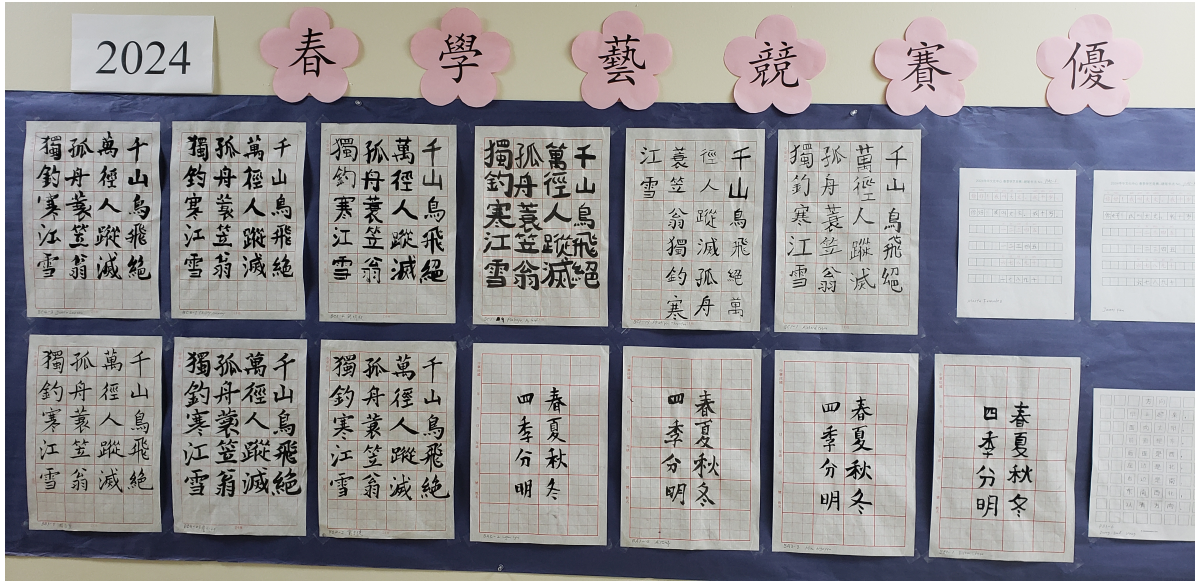 2024
春學藝競賽優
千山鳥飛絕
萬徑人蹤滅
孤舟蓑笠翁
獨釣寒江雪
千山鳥飛絕
萬徑人蹤滅
孤舟蓑笠翁
獨釣寒江雪
千山鳥飛絕
萬徑人蹤滅
孤舟蓑笠翁
獨釣寒江雪
千山鳥飛絕
萬徑人蹤滅
孤舟蓑笠翁
獨釣寒江雪
千山鳥飛絕萬
徑人蹤滅孤舟
蓑笠翁獨釣寒
江雪
千山鳥飛絕
萬徑人蹤滅
孤舟蓑笠翁
獨釣寒江雪
千山鳥飛絕
萬徑人蹤滅
孤舟蓑笠翁
獨釣寒江雪
千山鳥飛絕
萬徑人蹤滅
孤舟蓑笠翁
獨釣寒江雪
千山鳥飛絕
萬徑人蹤滅
孤舟蓑笠翁
獨釣寒江雪
春夏秋冬
四季分明
春夏秋冬
四季分明
春夏秋冬
四季分明
春夏秋冬
四季分明